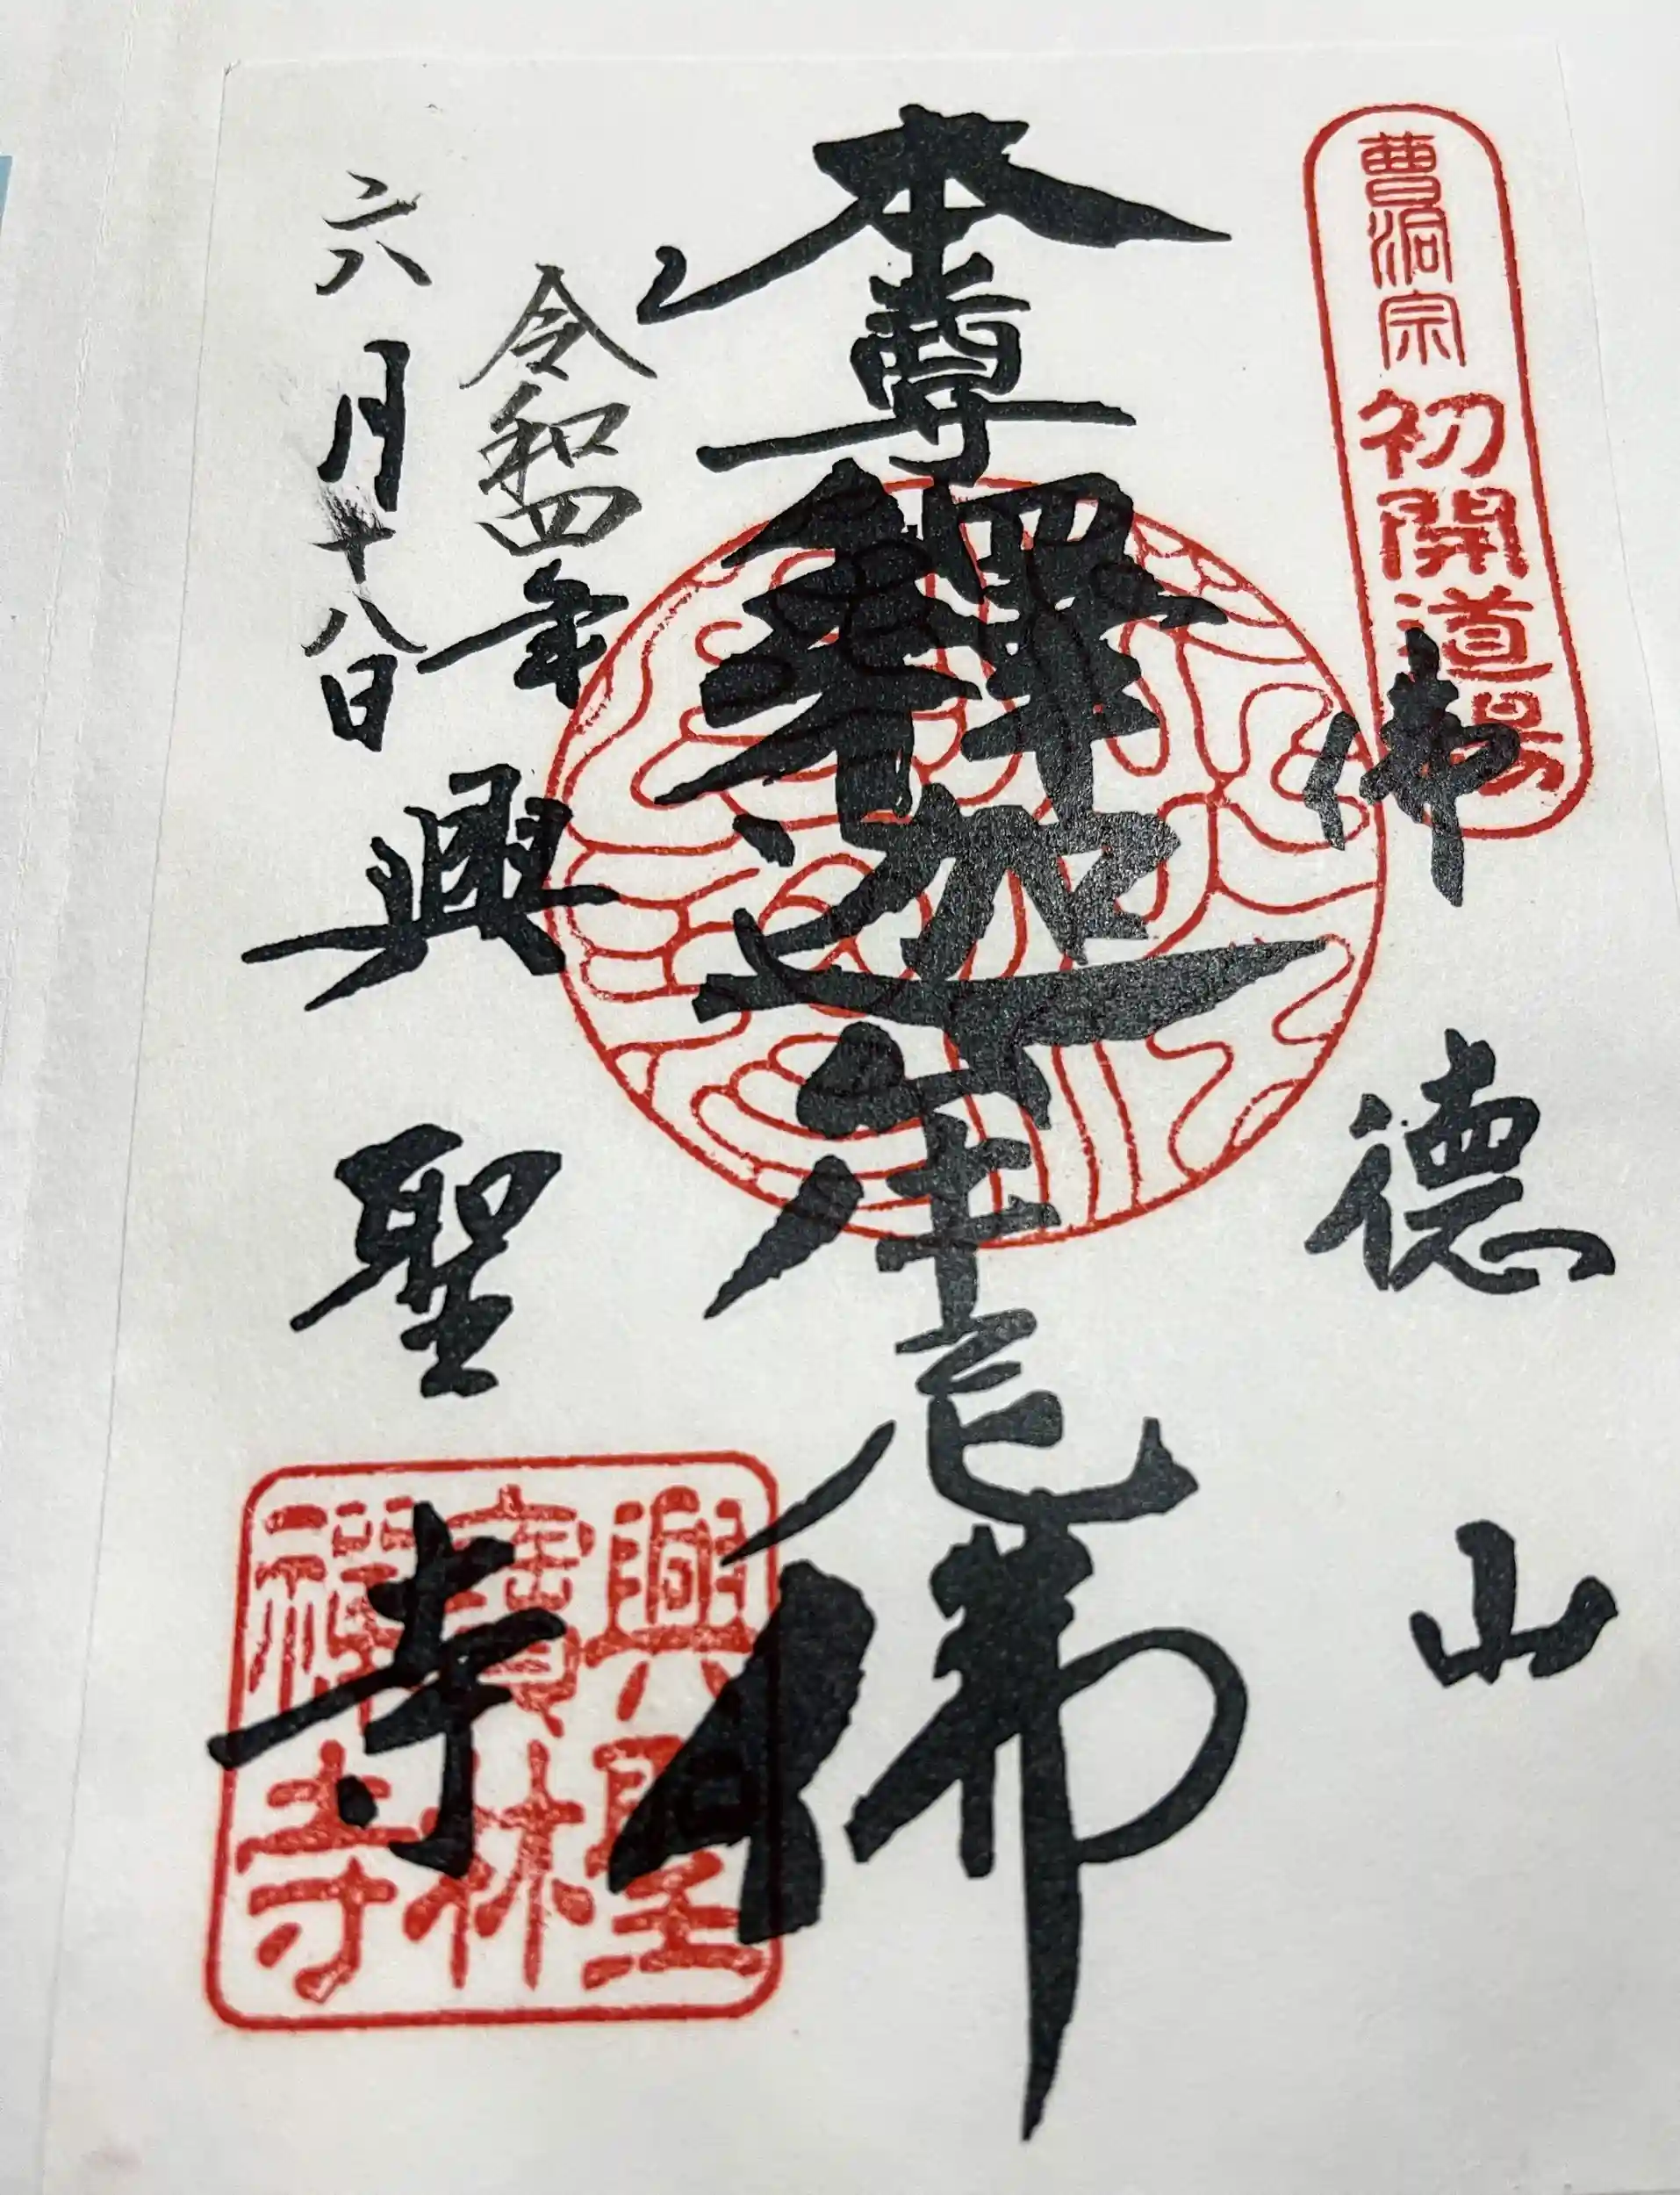 曹洞宗 初開道場
佛德山
本尊釋迦牟尼佛
令和四年
六月十八日
興聖寺
興聖
寶林
禪寺